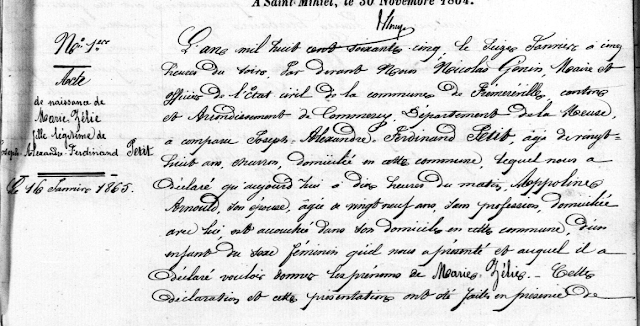 A Saint-Mihiel, le 30 Novembre 1864.
No. 1er
Acte
de naissance de
Marie Zélie
fille légitime de
Joseph-Alexandre-Ferdinand Petit
Le 16 Janvier 1865.
L'an mil huit cent soixante cinq, le seize Janvier à cinq
heures du soir, Par devant Nous Nicolas Genin, Maire et
officier de l'Etat civil de la commune de canton
et Arrondissement de Commercy, Département de la Meuse,
a comparu Joseph-Alexandre, Ferdinand Petit, âgé de vingt-
huit ans, charron, domicilié en cette commune, lequel nous a
déclaré qu'aujourd'hui à dix heures du matin, Appoline
Arnould, son épouse, âgée de vingt neuf ans, sans profession, domiciliée
avec lui, est accouchée dans son domicile en cette commune, d'un
enfant du sexe féminin qu'il nous a présenté et auquel il a
déclaré vouloir donner les prénoms de Marie-Zélie. — Cette
déclaration et cette présentation ont été faites en présence de